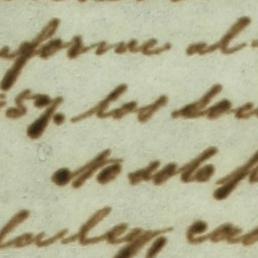 informe al
57. los doc
No solo f
la ley, cas